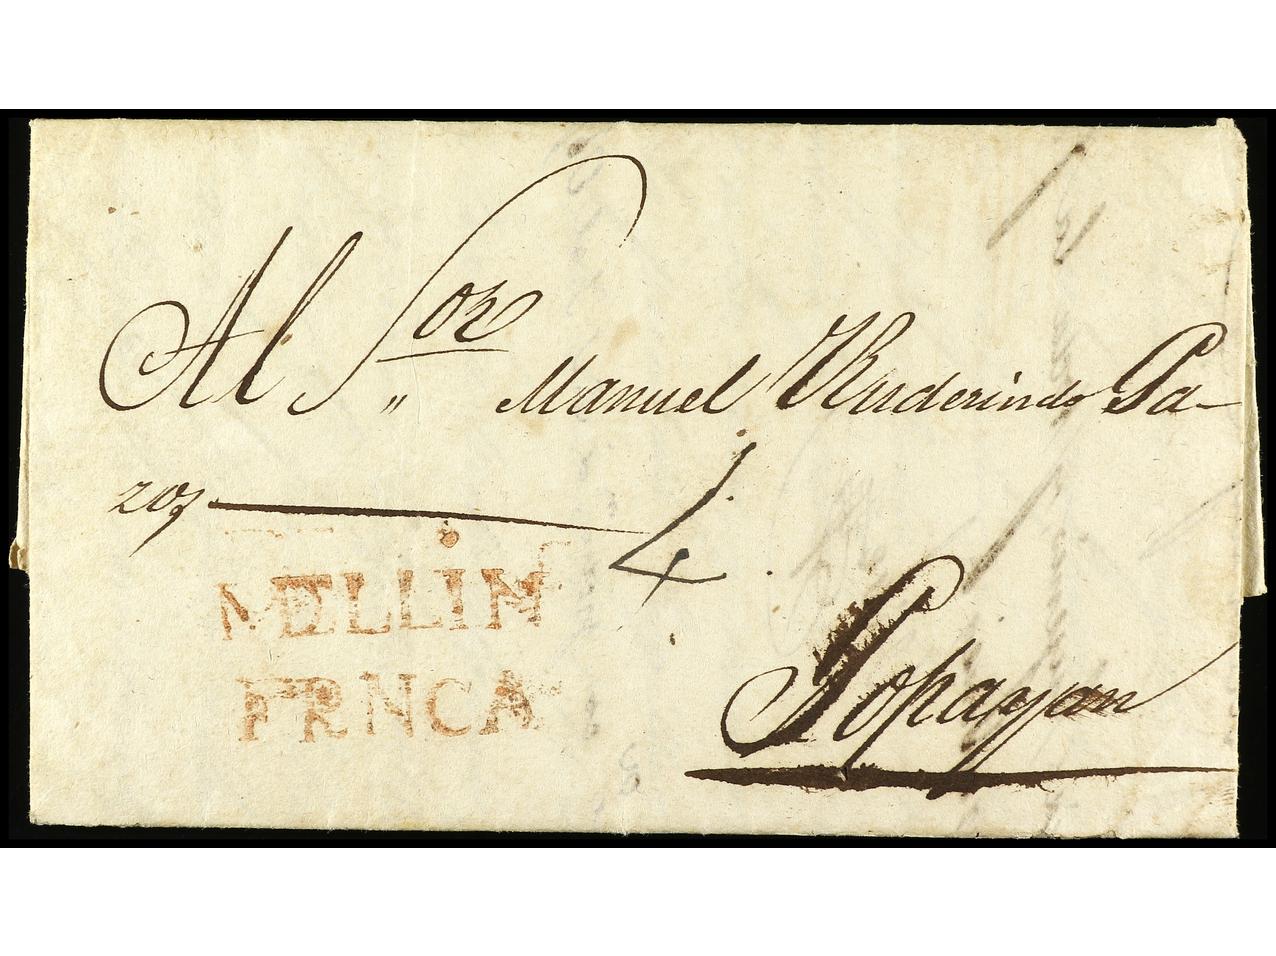 Al Sor Manuel Ruderindo Pa-
zos 4
MELLIN
FRNCA
Popayan